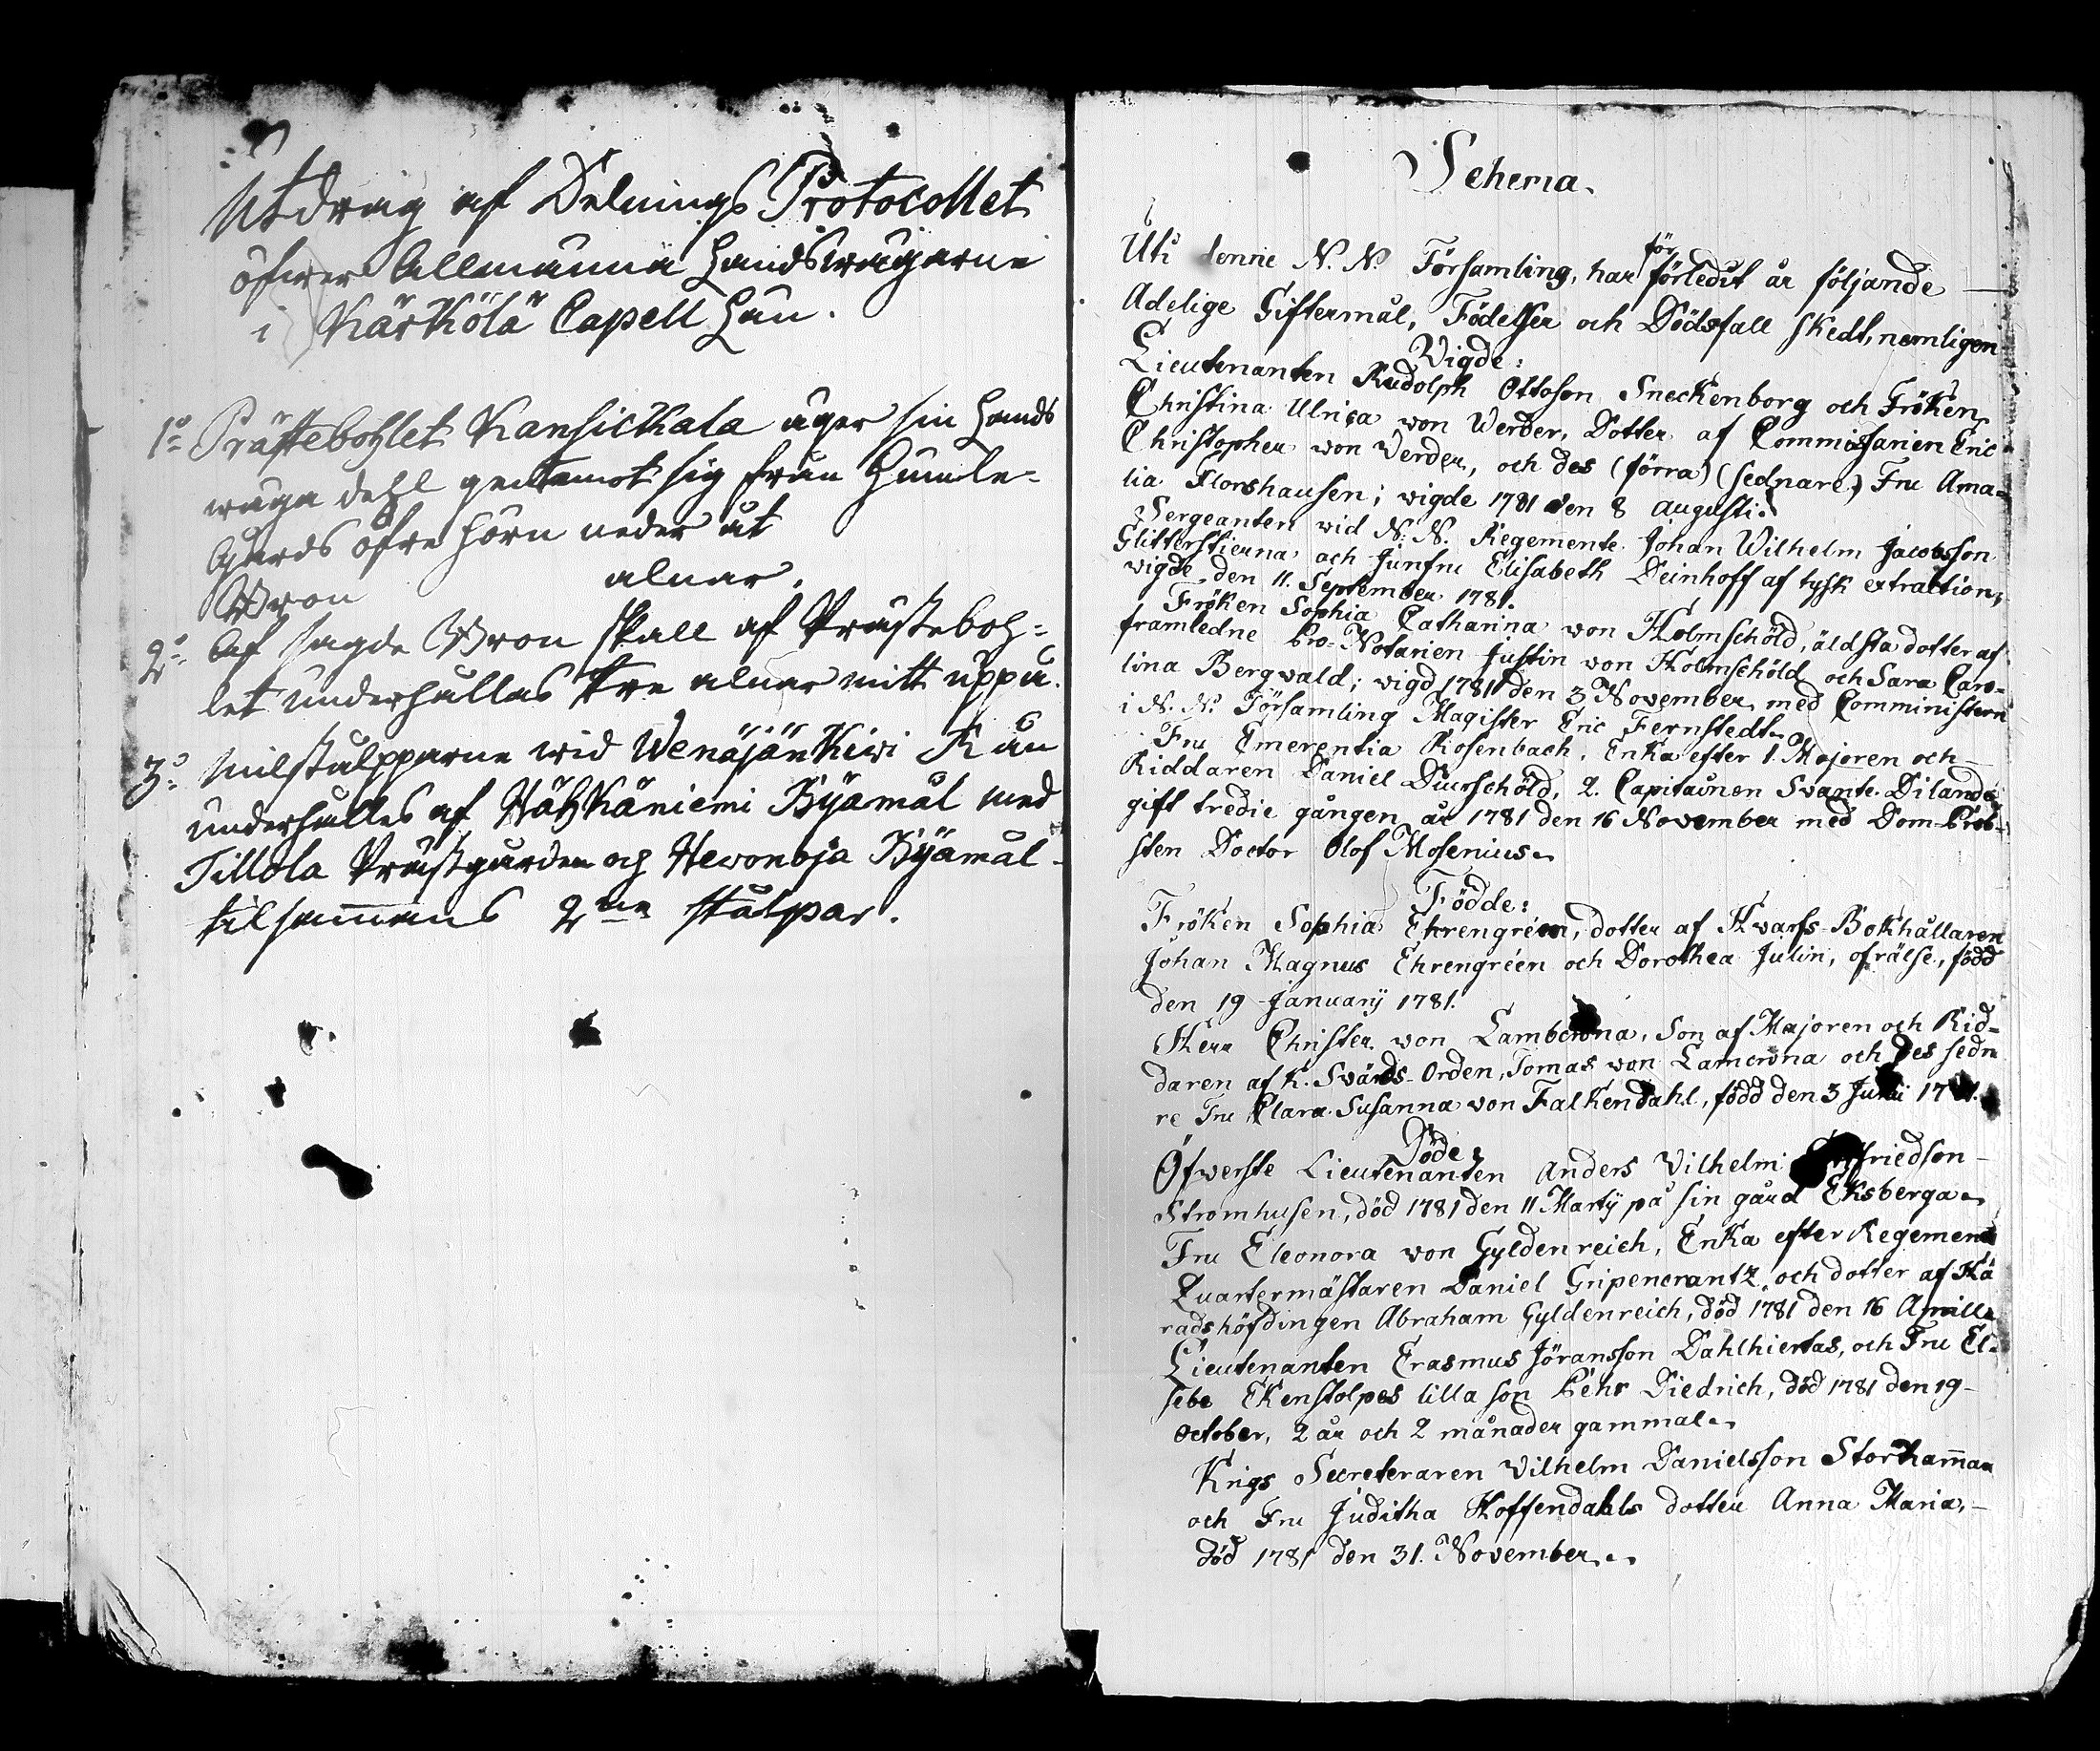 Utdrag af Delnings Protocollet
öfwer Allmänna Landswägarne
i Kärkölä Capell Län.
1o Prästebohlet Kansickala äger sin Lands
wägs dehl gentemot sig från Humle-
gårds öfre hörn neder åt
Bron alnar.
2o Af sagde Bron skall af Prästeboh-
let underhållas tre alnar mitt uppå.
3o Milstålpparne wid Wenäjän Kiwi Rån
underhålles af Hähkäniemi Byamål med
Tillola Prästgården och Hewonoja Byamål
tilsammans 2ne stålpar.
Schema.
Uti denne N. N. Församling, har för förledit år följande
Adelige Giftermål, Födelser och Dödsfall skedt, nemligen
Vigde:
Lieutenanten Rudolph Ottoson Sneckenborg och Fröken
Christina Ulrica von Werder, Dotter af Commissarien Eric
Christopher von Verder, och des (förra) (sednare) Fru Ama-
lia Florshausen; vigde 1781 den 8 augusti.
Sergeanten wid N. N. Regemente Johan Wilhelm Jacobsson
Glitterstierna och Junfru Elisabeth Deinhoff af tysk extraction,
vigde den 11. September 1781.
Fröken Sophia Catharina von Holmschöld, äldsta dotter af
framledne Pro-Notarien Justin von Holmschöld och Sara Caro-
lina Bergwald; vigd 1781 den 3 November med Comministern
i N. N. Församling Magister Eric Fernstedt.
Fru Emerentia Rosenbach, Enka efter 1. Majoren och
Riddaren Daniel Duerschöld, 2. Capitainen Svante Dilande,
gift tredie gången år 1781 den 16 November med Dom-Prob-
sten Doctor Olof Mosenius.
Födde:
Fröken Sophia Ehrengréen, dotter af Hwarfs-Bokhållaren
Johan Magnus Ehrengréen och Dorothea Julin, ofrälse, född
den 19 Januarij 1781.
Herr Christer von Lambcrona, Son af Majoren och Rid-
daren af K. Svärds-Orden, Tomas von Lamcrona och des sedn
re Fru Clara Susanna von Falkendahl, född den 3 Junii 1781.
Döde:
Öfwerste Lieutenanten Anders Vilhelm friedson
Stromhusen, död 1781 den 11 Martij på sin gård Eksberga.
Fru Eleonora von Gyldenreich, Enka efter Regements
Quartermästaren Daniel Gripencrantz, och dotter af Hä
radshöfdingen Abraham Gyldenreich, död 1781 den 16 Aprill.
Lieutenanten Erasmus Jöransson Dahlhiertas, och Fru El-
sebe Ekenstolpes lilla son Pehr Diedrich, död 1781 den 19
October, 2 år och 2 månader gammal.
Krigs Secreteraren Vilhelm Danielsson Storhamman
och Fru Juditha Hoffendahls dotter Anna Maria,
död 1781 den 31. November.